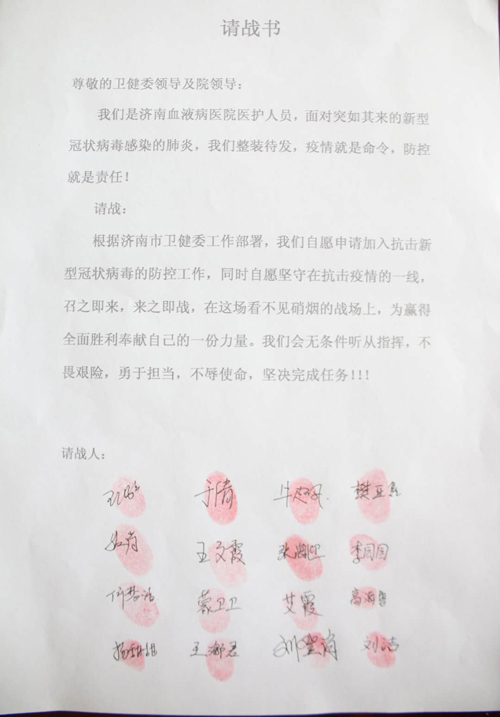 请战书
尊敬的卫健委领导及院领导：
我们是济南血液病医院医护人员，面对突如其来的新型
冠状病毒感染的肺炎，我们整装待发，疫情就是命令，防控
就是责任！
请战：
根据济南市卫健委工作部署，我们自愿申请加入抗击新
型冠状病毒的防控工作，同时自愿坚守在抗击疫情的一线。
召之即来，来之即战，在这场看不见硝烟的战场上，为赢得
全面胜利奉献自己的一份力量。我们会无条件听从指挥，不
畏艰险，勇于担当，不辱使命，坚决完成任务!!!
请战人：
于倩
王文霞 李园园
蒙卫卫 艾霞
刘洁